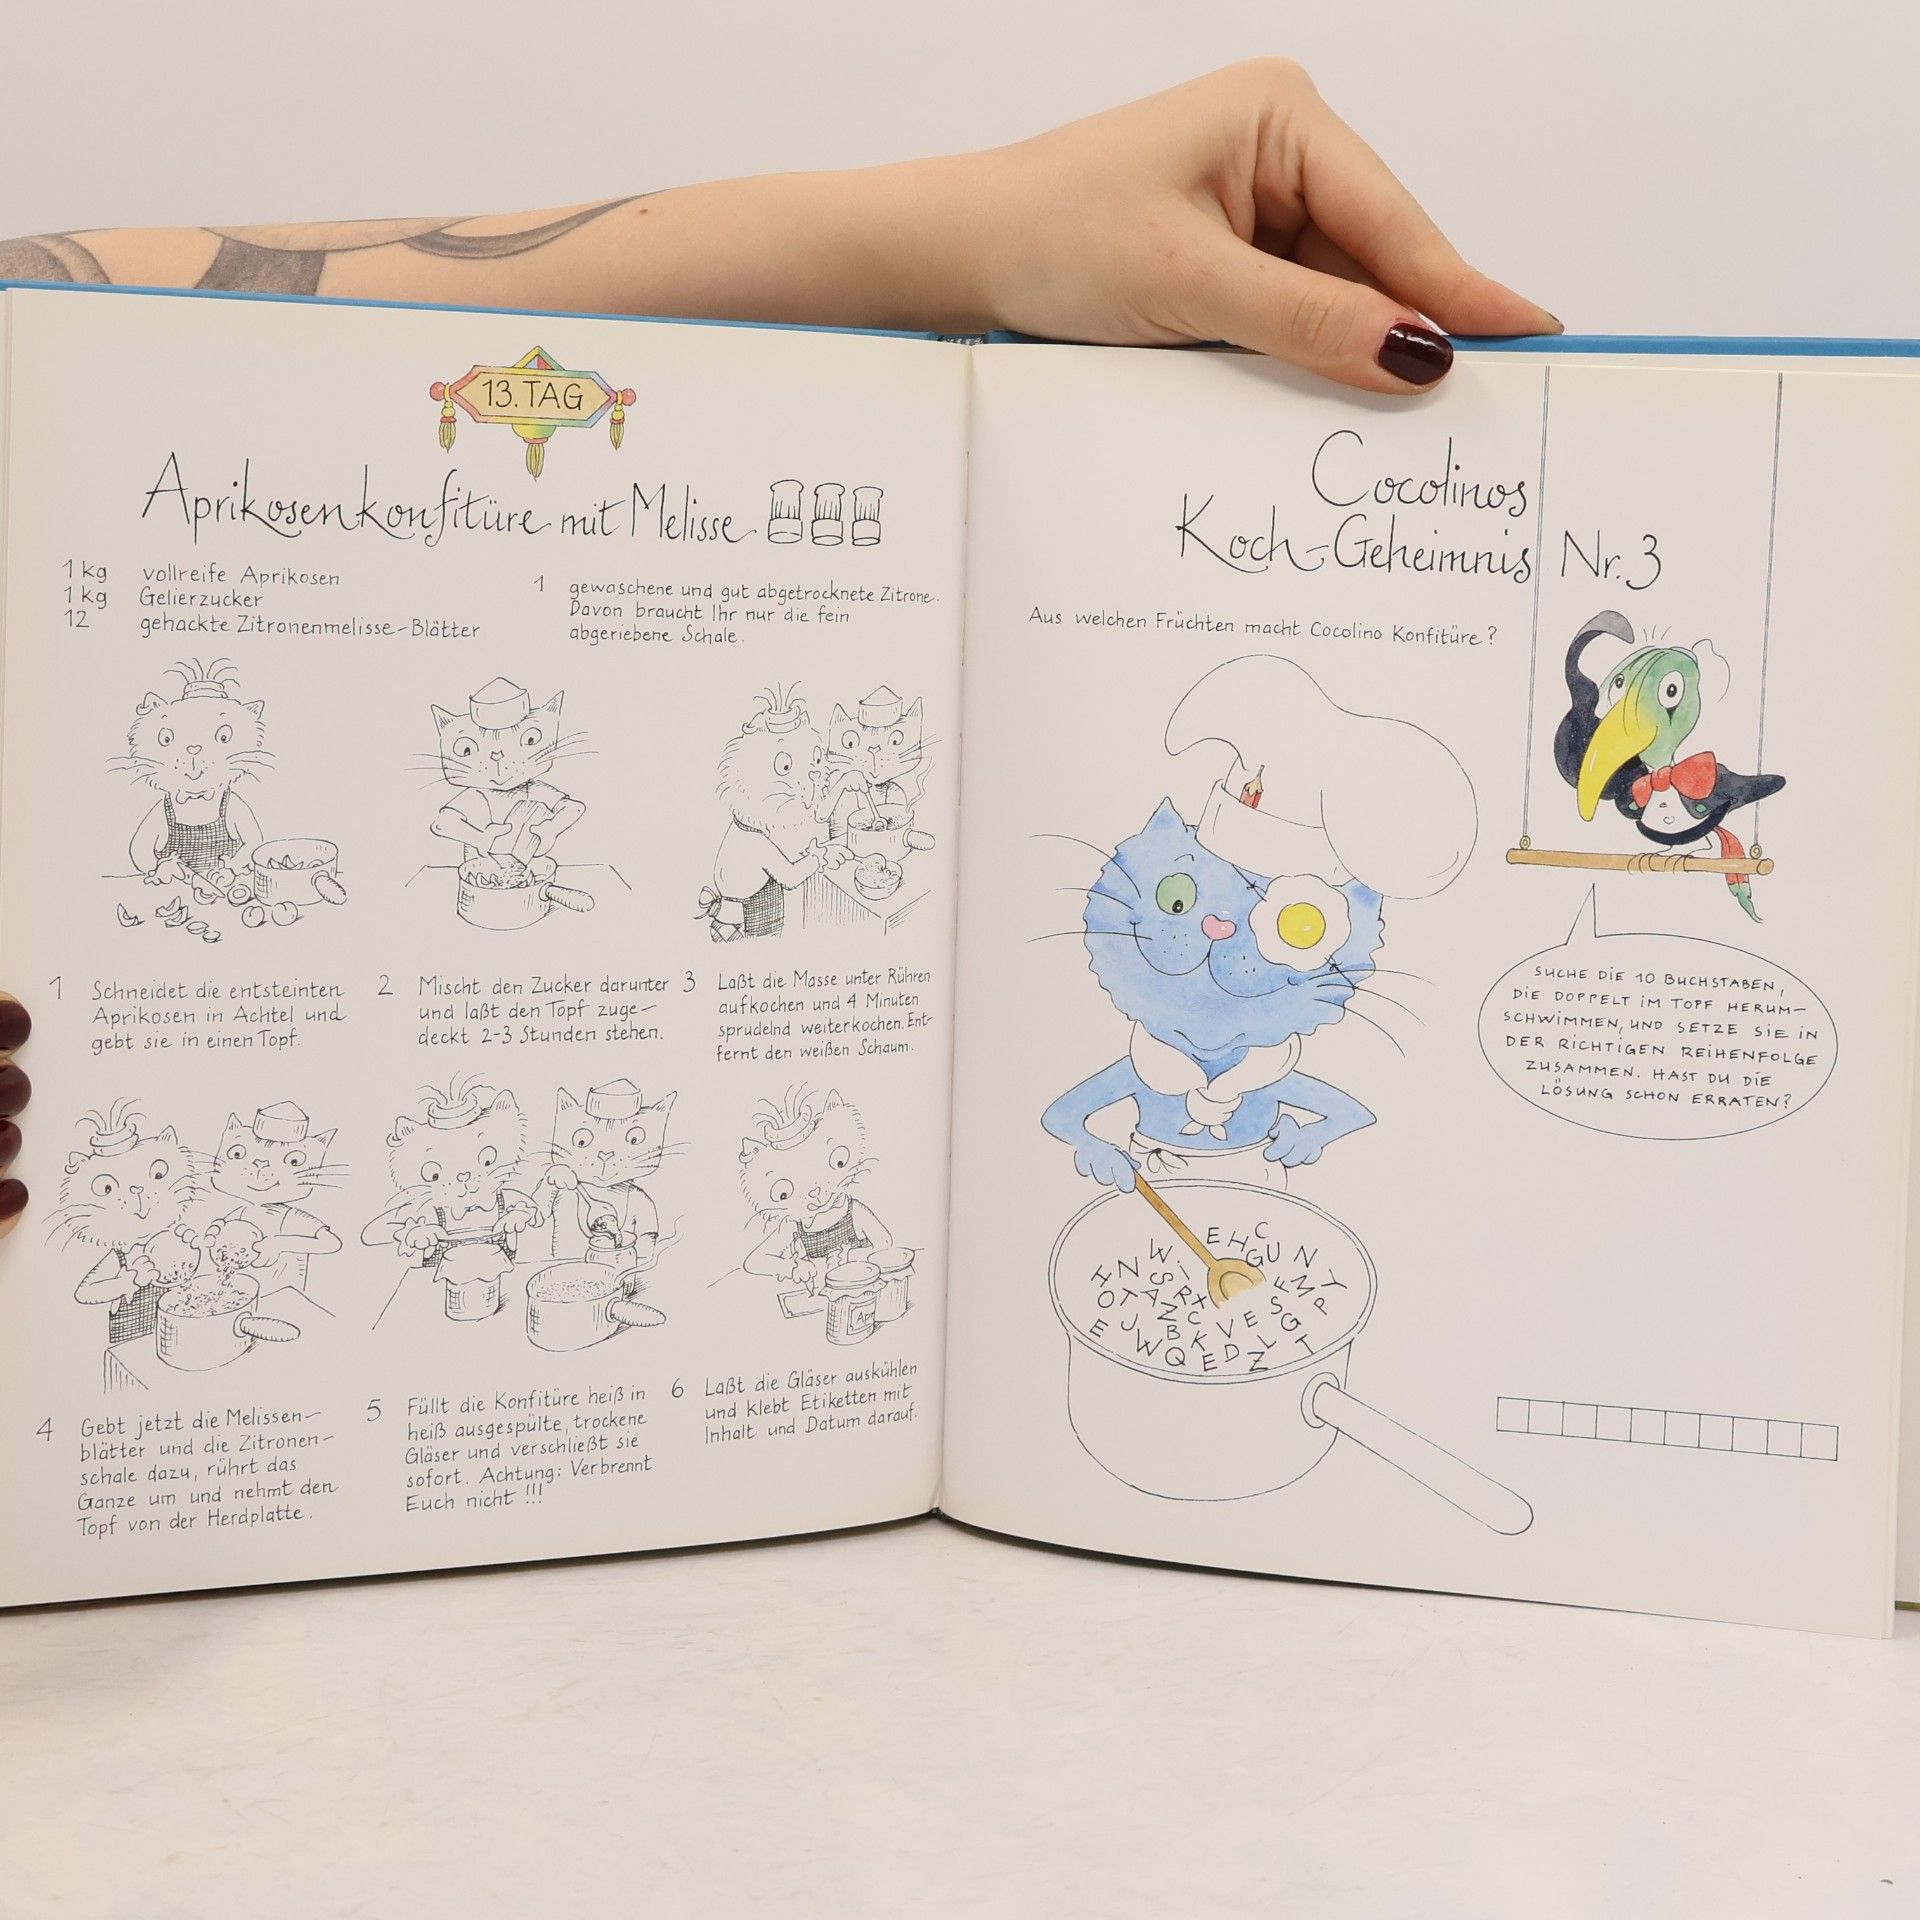 13. TAG
Aprikosenkonfitüre mit Melisse
1 kg vollreife Aprikosen
1 kg Gelierzucker
12 gehackte Zitronenmelisse-Blätter
1 gewaschene und gut abgetrocknete Zitrone.
Davon braucht Ihr nur die fein
abgeriebene Schale.
1 Schneidet die entsteinten
Aprikosen in Achtel und
gebt sie in einen Topf.
2 Mischt den Zucker darunter
und laßt den Topf zuge-
deckt 2-3 Stunden stehen.
3 Laßt die Masse unter Rühren
aufkochen und 4 Minuten
sprudelnd weiterkochen. Ent-
fernt den weißen Schaum.
4 Gebt jetzt die Melissen-
blätter und die Zitronen-
schale dazu, rührt das
Ganze um und nehmt den
Topf von der Herdplatte.
5 Füllt die Konfitüre heiß in
heiß ausgespülte, trockene
Gläser und verschließt sie
sofort. Achtung: Verbrennt
Euch nicht !!!
Apr
6 Laßt die Gläser auskühlen
und klebt Etiketten mit
Inhalt und Datum darauf.
Cocolinos
Koch-Geheimnis Nr. 3
Aus welchen Früchten macht Cocolino Konfitüre?
SUCHE DIE 10 BUCHSTABEN,
DIE DOPPELT IM TOPF HERUM-
SCHWIMMEN, UND SETZE SIE IN
DER RICHTIGEN REIHENFOLGE
ZUSAMMEN. HAST DU DIE
LÖSUNG SCHON ERRATEN?
E H C G U N
H N W S i F M Y
O T A Z R X S P
E J W B C K V E L G T
Q E D Z